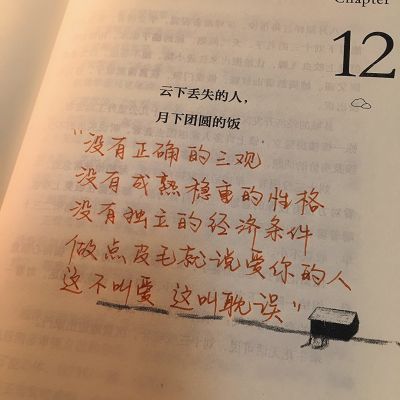 Chapter
12
云下丢失的人，
月下团圆的饭
"没有正确的三观
没有成熟稳重的性格
没有独立的经济条件
做点皮毛就说爱你的人
这不叫爱 这叫耽误"